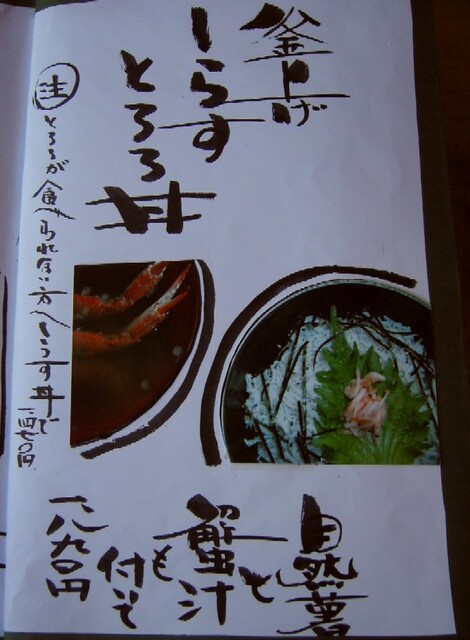 釜上げ
しらす
とろろ丼
注
とろろが食べられない方へしらす丼で
一四七〇円
自然薯
と
蟹汁
も
付いて
一、八九〇円